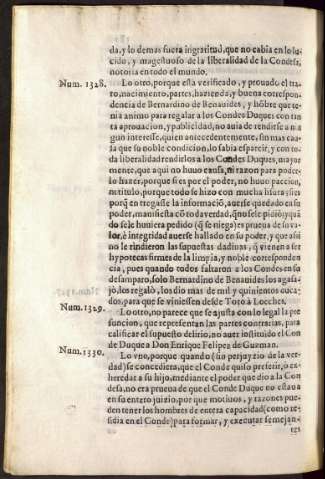 da, y lo demas fuera ingratitud, que no cabia en lo lu-
cido, y magestuoso de la liberalidad de la Condesa,
notoria en todo el mundo.
Num. 1328. Lo otro, porque esta verificado, y prouado el tra-
to, nacimiento, partes, hazienda, y buena correspon-
dencia de Bernardino de Benauides, y hõbre que te-
nia animo para regalar a los Condes Duques con tin
ta aprouacion, y publicidad, no auia de rendirse a nin
gun interesse, quien antecedentemente, sin mas cau-
sa que su noble condicion, lo sabia esparcir, y con to-
da liberalidad rendirlos a los Condes Duques, mayor
mente, que aqui no huuo causa, ni razon para poder-
lo hazer, porque si es por el poder, no huuo paccion,
ni titulo, porque todo se hizo con mucha lisura; si es
porq̃ en tregasse la informaciõ, auerse quedado en su
poder, manifiesta cõ toda verdad, q̃ no se le pidiò; y quã
do se le huuiera pedido (q̃ se niega) es prueua de su va-
lor, è integridad auerse hallado en su poder, y que assi
no le rindieron las supuestas dadiuas, q̃ vienen a ser
hypotecas firmes de la limpia, y noble correspondẽn
cia, pues quando todos faltaron a los Condes en su
desamparo, solo Bernardino de Benauides los agasa-
jò, les regalò, los dio mas de mil y quinientos duca-
dos, para que se viniessen desde Toro à Loeches.
Num. 1329. Lo otro, no parece que se ajusta con lo legal la pre
suncion, que representan las partes contrarias, para
calificar el supuesto delirio, no auer instituido el Con
de Duque a Don Enrique Felipez de Guzman.
Num. 1330. Lo vno, porque quando (sin perjuyzio de la ver-
dad) se concediera, que el Conde quiso preferir, o ex-
heredar a su hijo, mediante el poder que dio a la Con
desa, no era prueua de que el Conde Duque no estaua
en su entero juizio, por que motiuos, y razones pue-
den tener los hombres de entera capacidad (como re-
sidia en el Conde) para formar, y executar semejan-